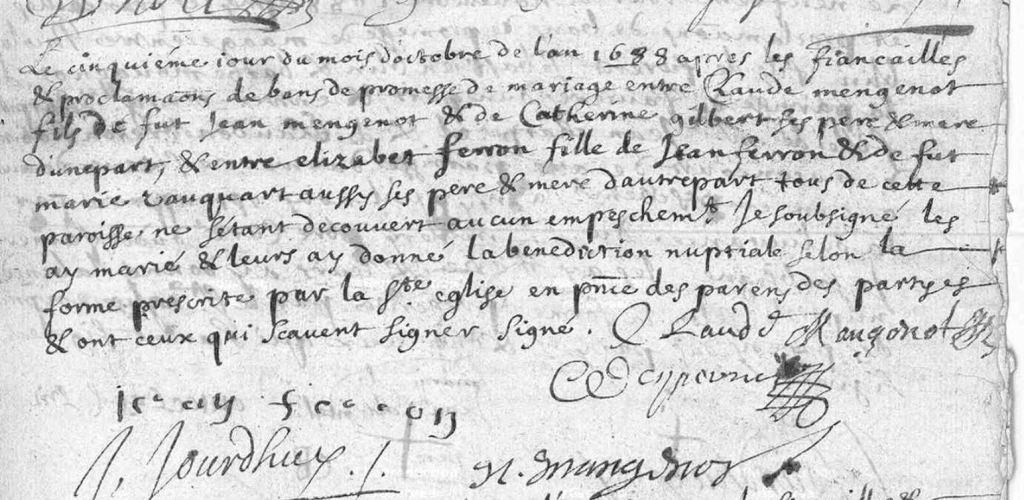 Le cinquiéme iour du mois d'octobre de l'an 1688 apres les fiancailles
& proclamaõns de bans de promesse de mariage entre Claude mengenot
fils de fut Jean mengenot & de Catherine gilbert ses pere & mere
d'unepart, & entre elizabet ferron fille de Jean ferron & de fut
marie vauquart aussy ses pere & mere d'autrepart tous de cette
paroisse ne s'étant decouvert aucun empeschem.t Je soubsigné les
ay marié & leurs ay donné la benediction nuptiale selon la
forme prescrite par la S.te eglise en pn̄ce des parens des partyes
& ont ceux qui scavent signer signé. Claude Mangenot
Jean ferron
J. Jourdhey. N. mangenot